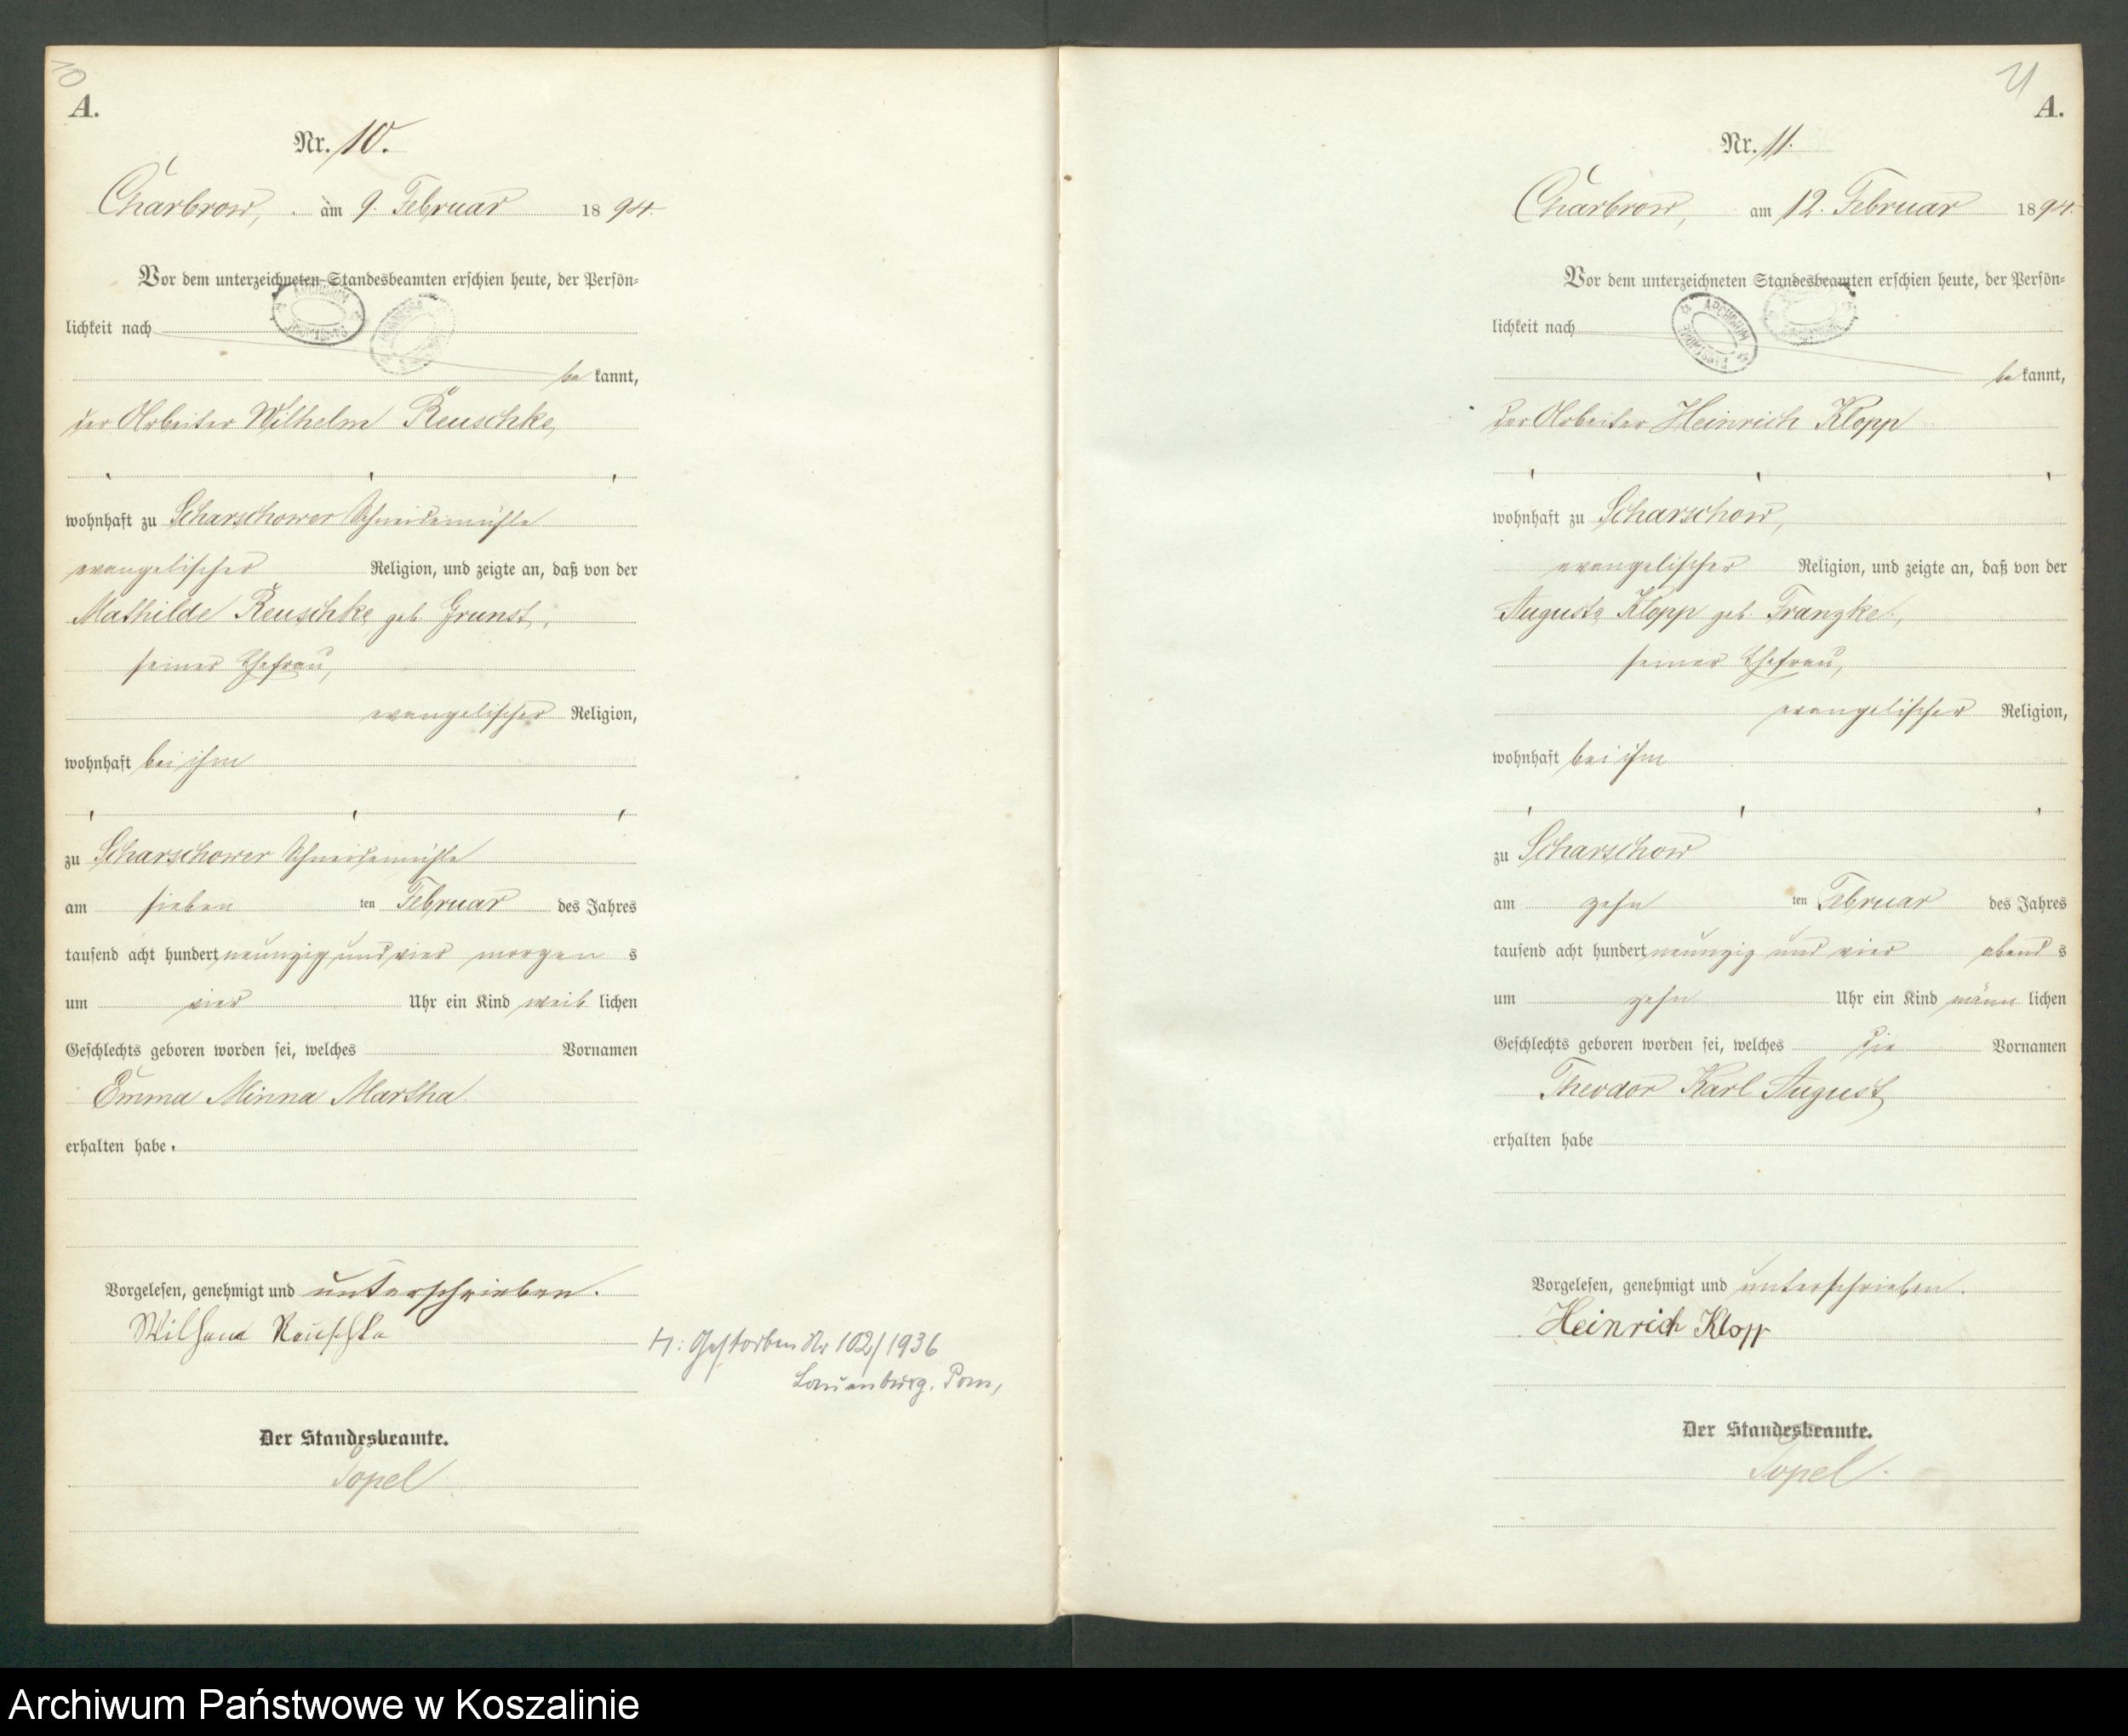 10
A.
Nr. 10.
Charbrow, am 9. Februar 1894.
Vor dem unterzeichneten Standesbeamten erschien heute, der Persön=
lichkeit nach
be kannt,
der Arbeiter Wilhelm Reuschke,
wohnhaft zu Scharschower Schneidemühle
evangelischer Religion, und zeigte an, daß von der
Mathilde Reuschke geb. Grunst,
seiner Ehefrau,
evangelischer Religion,
wohnhaft bei ihm
zu Scharschower Schneidemühle
am sieben ten Februar des Jahres
tausend acht hundert neunzig und vier morgen s
um vier Uhr ein Kind weib lichen
Geschlechts geboren worden sei, welches Vornamen
Emma Minna Martha
erhalten habe.
Vorgelesen, genehmigt und unterschrieben.
Wilhem Reuschke
H: Gestorben Nr 102/1936
Lauenburg. Pom,
Der Standesbeamte.
Topel
11
A.
Nr. 11.
Charbrow, am 12. Februar 1894.
Vor dem unterzeichneten Standesbeamten erschien heute, der Persön=
lichkeit nach
be kannt,
der Arbeiter Heinrich Klopp
wohnhaft zu Scharschow,
evangelischer Religion, und zeigte an, daß von der
Auguste Klopp geb. Franzke,
seiner Ehefrau,
evangelischer Religion,
wohnhaft bei ihm
zu Scharschow
am zehn ten Februar des Jahres
tausend acht hundert neunzig und vier abend s
um zehn Uhr ein Kind männ lichen
Geschlechts geboren worden sei, welches die Vornamen
Theodor Karl August
erhalten habe
Vorgelesen, genehmigt und unterschrieben.
Heinrich Klopp
Der Standesbeamte.
Topel.
Archiwum Państwowe w Koszalinie